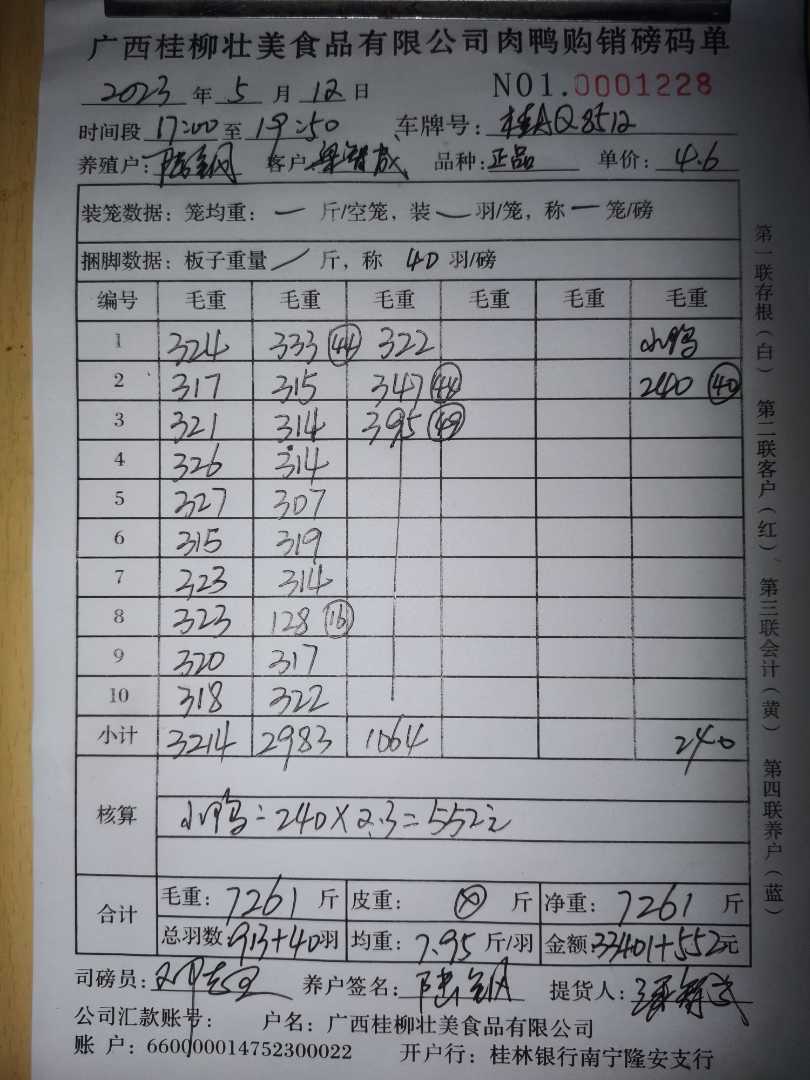 广西桂柳壮美食品有限公司肉鸭购销磅码单
2023 年 5 月 12 日 NO1.0001228
时间段 17:00 至 19:50 车牌号: 桂AQ8512
养殖户: 陆钢 客户: 品种: 正品 单价: 4.6
装笼数据: 笼均重: 一 斤/空笼, 装 一 羽/笼, 称 一 笼/磅
捆脚数据: 板子重量 / 斤, 称 40 羽/磅
编号 毛重 毛重 毛重 毛重 毛重 毛重
1 324 333 (44) 322 小鸭
2 317 315 347 (44) 240 (40)
3 321 314 395 (49)
4 326 314
5 327 307
6 315 319
7 323 314
8 323 128 (16)
9 320 317
10 318 322
小计 3214 2983 1064 240
核算 小鸭=240×2.3=552元
合计 毛重: 7261 斤 皮重: ⊗ 斤 净重: 7261 斤
总羽数: 913+40羽 均重: 7.95 斤/羽 金额: 33401+552元
司磅员: 养户签名: 陆钢 提货人:
公司汇款账号: 户名: 广西桂柳壮美食品有限公司
账 户: 660000014752300022 开户行: 桂林银行南宁隆安支行
第一联存根(白) 第二联客户(红) 第三联会计(黄) 第四联养户(蓝)